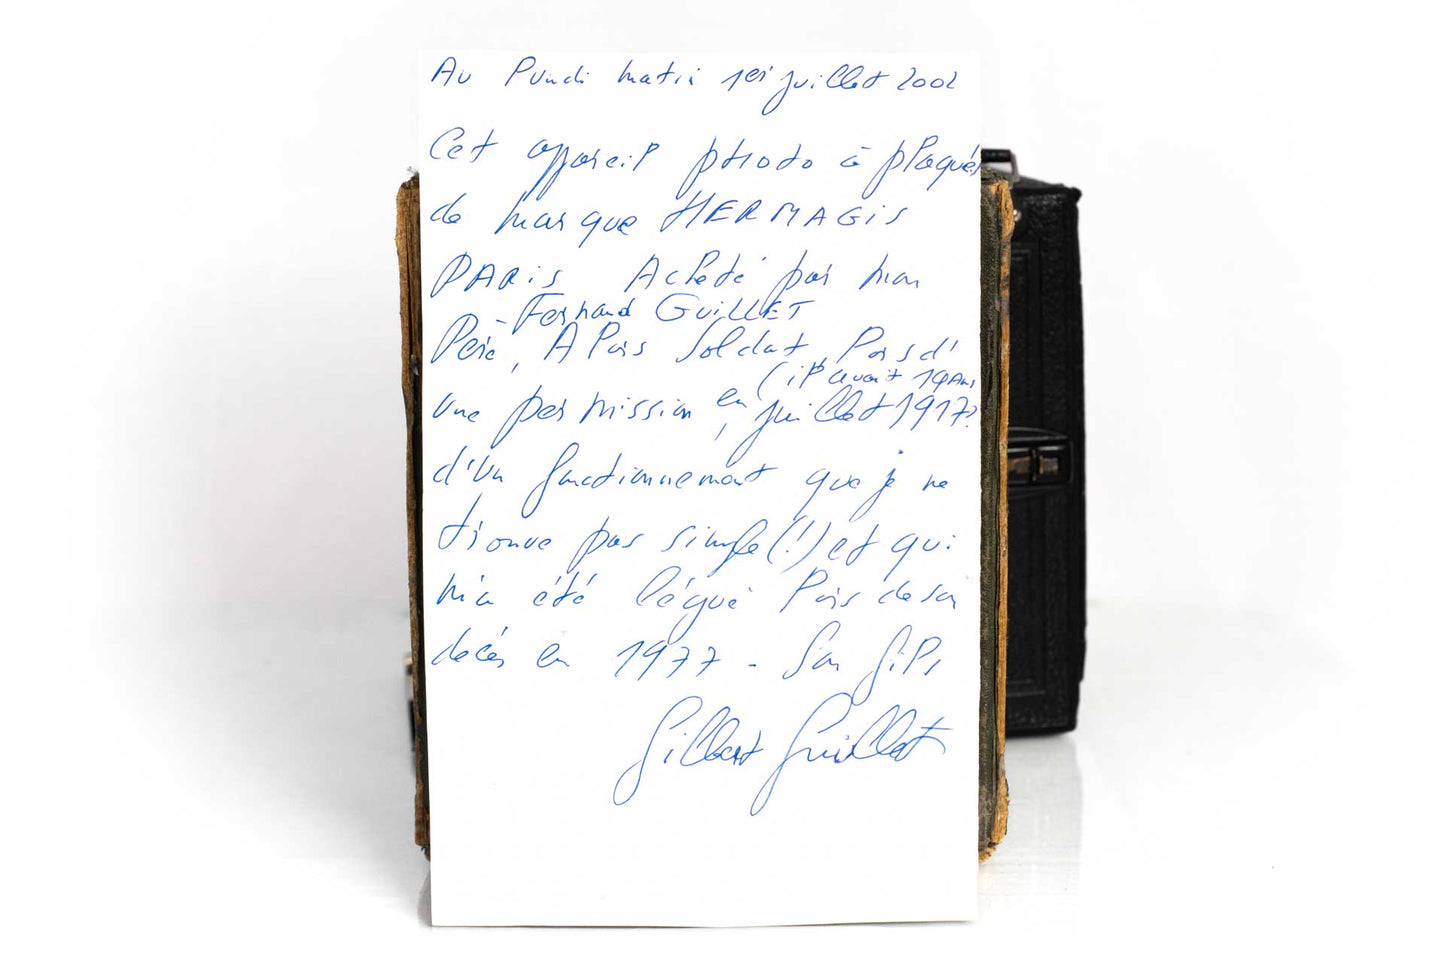 Au lundi matin 1er juillet 2002
Cet appareil photo à plaques
de marque HERMAGIS
PARIS Acheté par mon
Fernand GUILLET
Père, Alors Soldat, lors d'
(il avait 19 Ans
une permission en juillet 1917?
d'un fonctionnement que je ne
trouve pas simple (!) et qui
m'a été légué lors de son
decés en 1977 - Son fils,
Gilbert Guillet